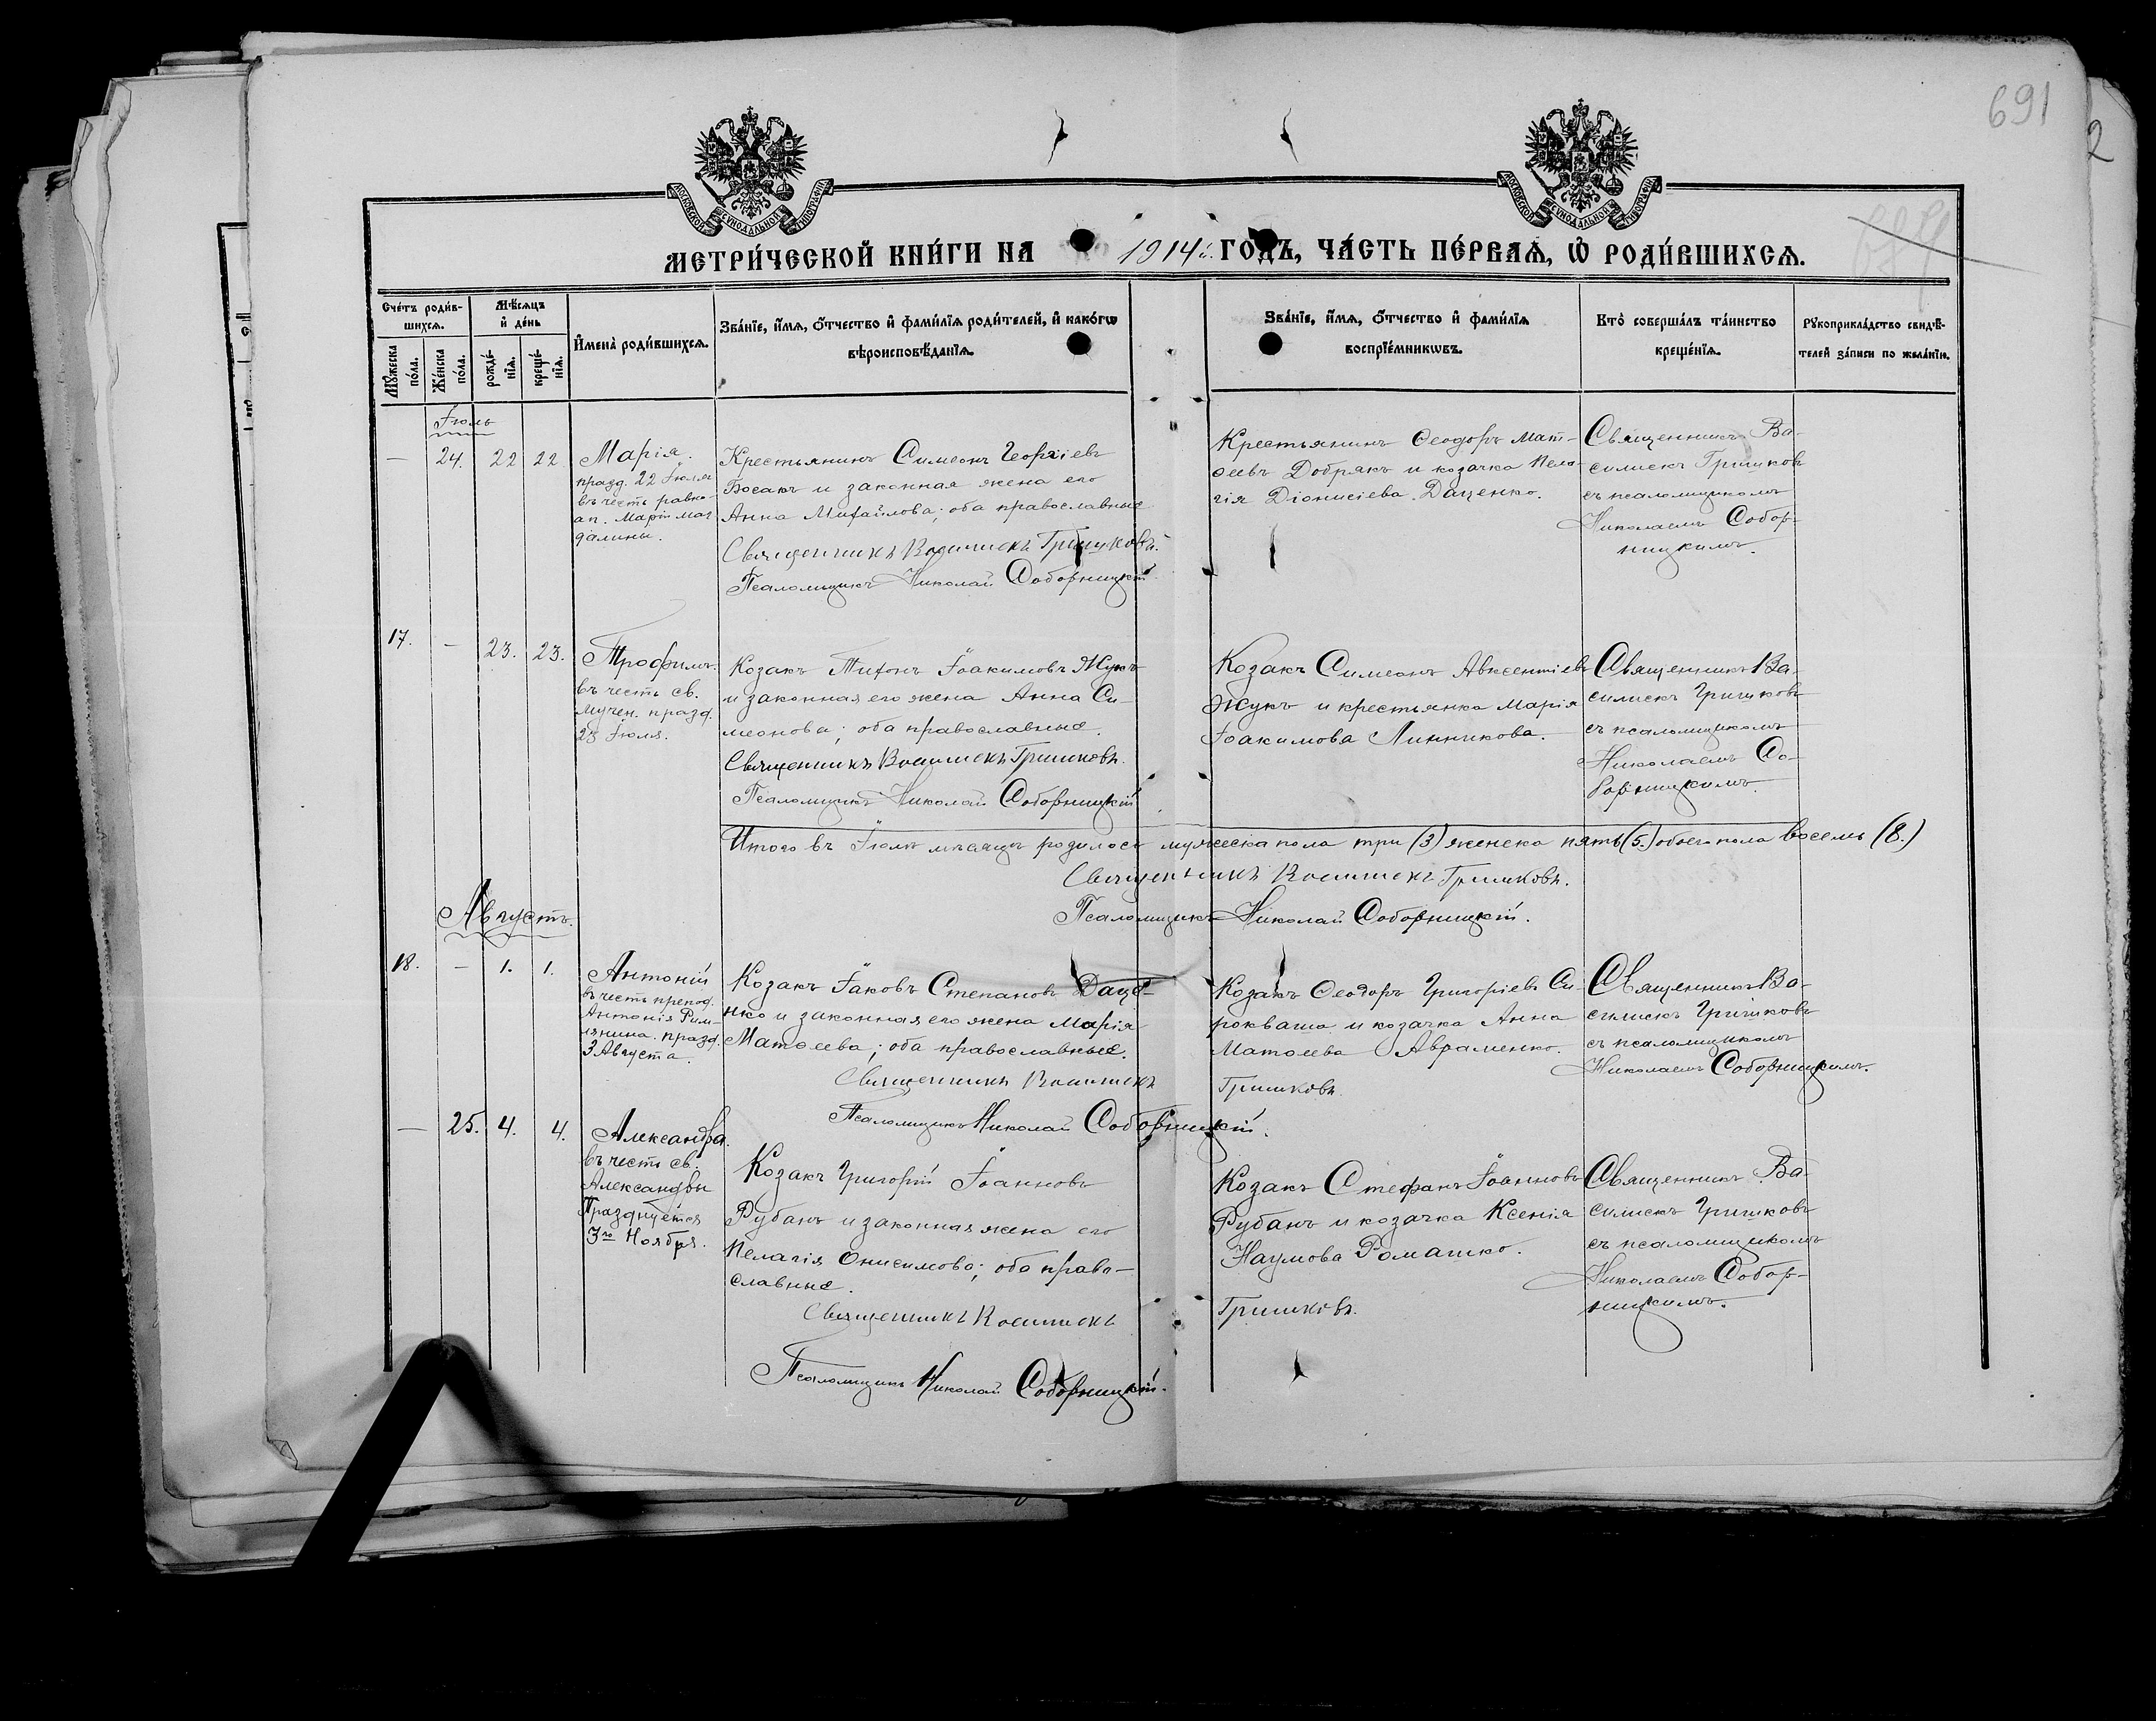 691
2
МОСКОВСКОЙ СѴНОДАЛЬНОЙ ТИПОГРАФІИ
МОСКОВСКОЙ СѴНОДАЛЬНОЙ ТИПОГРАФІИ
МЕТРИ́ЧЕСКОЙ КНИ́ГИ НА 1914 г. ГОДЪ, ЧА́СТЬ ПЕ́РВАѦ, Ѡ҆ РОДИ́ВШИХСѦ.
Сче́тъ роди́в-
шихсѧ.
Мѣ́сѧцъ
и҆ де́нь
Мꙋ́жеска
по́ла.
Же́нска
по́ла.
рожде́-
нїѧ.
креще́-
нїѧ.
И҆мена̀ роди́вшихсѧ.
Зва́нїе, и҆́мѧ, ѻ҆́тчество и҆ фами́лїѧ роди́телей, и҆ како́гѡ
вѣроисповѣ́данїѧ.
Зва́нїе, и҆́мѧ, ѻ҆́тчество и҆ фами́лїѧ
воспрїе́мникѡвъ.
Кто̀ соверша́лъ та́инство
креще́нїѧ.
Рꙋкоприкла́дство свидѣ́-
телей за́писи по жела́нїю.
Іюль
— 24. 22 22
Марія.
празд. 22 Іюля
въ честь равно-
ап. Маріи Маг
далины.
Крестьянинъ Симеонъ Георгіевъ
Босакъ и законная жена его
Анна Михайлова; оба православные
Священникъ Василискъ Гришковъ.
Псаломщикъ Николай Соборницкій
Крестьянинъ Ѳеодоръ Мат-
ѳеевъ Добрякъ и козачка Пела-
гія Діонисіева Даценко.
Священникъ Ва-
силискъ Гришковъ
съ псаломщикомъ
Николаемъ Собор-
ницкимъ.
17. — 23. 23.
Трофимъ.
въ честь св.
мучен. празд.
23 Іюля.
Козакъ Тихонъ Іоакимовъ Жукъ
и законная его жена Анна Си-
меонова; оба православные.
Священникъ Василискъ Гришковъ.
Псаломщикъ Николай Соборницкій
Козакъ Симеонъ Авксентіевъ
Жукъ и крестьянка Марія
Іоакимова Линникова.
Священникъ Ва-
силискъ Гришковъ
съ псаломщикомъ
Николаемъ Со-
борницкимъ.
Итого въ Іюлѣ мѣсяцѣ родилось мужеска пола три (3) женска пять (5.) обоего пола восемь (8.)
Священникъ Василискъ Гришковъ.
Псаломщикъ Николай Соборницкій.
Августъ.
18. — 1. 1.
Антоній
въ честь препод.
Антонія Рим-
лянина. празд.
3 Августа.
Козакъ Іаковъ Степановъ Даце-
нко и законная его жена Марія
Матѳеева; оба православные.
Священникъ Василискъ
Гришковъ
Псаломщикъ Николай Соборницкій.
Козакъ Ѳеодоръ Григоріевъ Си-
рокваша и козачка Анна
Матѳеева Авраменко.
Священникъ Ва-
силискъ Гришковъ
съ псаломщикомъ
Николаемъ Соборницкимъ.
— 25. 4. 4.
Александра.
въ честь св.
Александры
Празднуется
3го Ноября.
Козакъ Григорій Іоанновъ
Рубанъ и законная жена его
Пелагія Онисимова; оба право-
славные.
Священникъ Василискъ
Гришковъ.
Псаломщикъ Николай Соборницкій.
Козакъ Стефанъ Іоанновъ
Рубанъ и козачка Ксенія
Наумова Ромашко.
Священникъ Ва-
силискъ Гришковъ
съ псаломщикомъ
Николаемъ Собор-
ницкимъ.